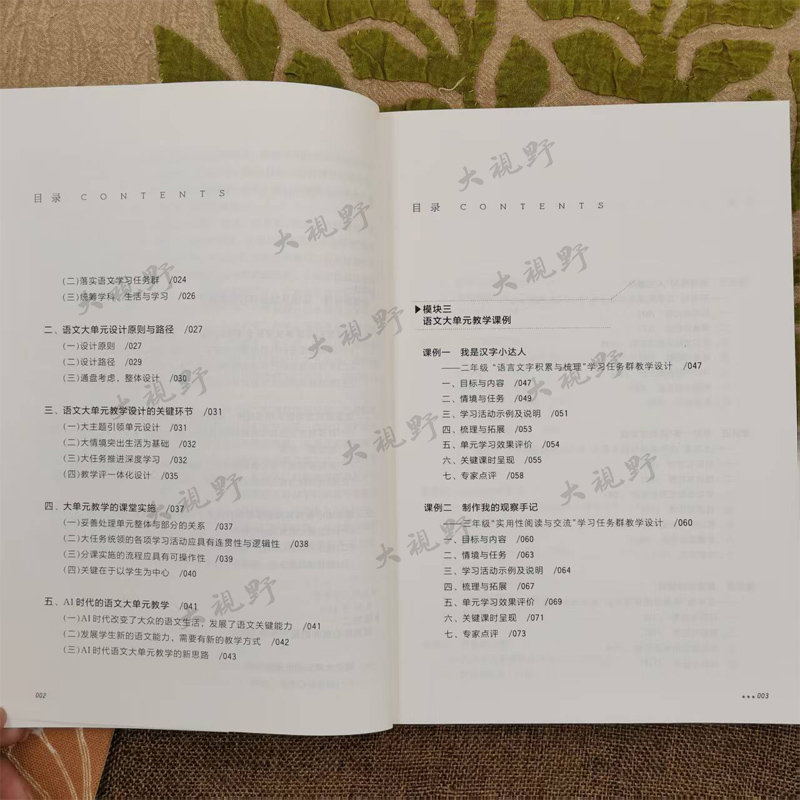 目录 CONTENTS
(二)落实语文学习任务群 /024
(三)统筹学科、生活与学习 /026
二、语文大单元设计原则与路径 /027
(一)设计原则 /027
(二)设计路径 /029
(三)通盘考虑，整体设计 /030
三、语文大单元教学设计的关键环节 /031
(一)大主题引领单元设计 /031
(二)大情境突出生活为基础 /032
(三)大任务推进深度学习 /032
(四)教学评一体化设计 /035
四、大单元教学的课堂实施 /037
(一)妥善处理单元整体与部分的关系 /037
(二)大任务统领的各项学习活动应具有连贯性与逻辑性 /038
(三)分课实施的流程应具有可操作性 /039
(四)关键在于以学生为中心 /040
五、AI时代的语文大单元教学 /041
(一)AI时代改变了大众的语文生活，发展了语文关键能力 /041
(二)发展学生新的语文能力，需要有新的教学方式 /042
(三)AI时代语文大单元教学的新思路 /043
002
目录 CONTENTS
模块三
语文大单元教学课例
课例一 我是汉字小达人
——二年级“语言文字积累与梳理”学习任务群教学设计 /047
一、目标与内容 /047
二、情境与任务 /049
三、学习活动示例及说明 /051
四、梳理与拓展 /053
五、单元学习效果评价 /054
六、关键课时呈现 /055
七、专家点评 /058
课例二 制作我的观察手记
——三年级“实用性阅读与交流”学习任务群教学设计 /060
一、目标与内容 /060
二、情境与任务 /063
三、学习活动示例及说明 /064
四、梳理与拓展 /067
五、单元学习效果评价 /069
六、关键课时呈现 /071
七、专家点评 /073
003
大视野
大视野
大视野
大视野
大视野
大视野
大视野
大视野
大视野
大视野